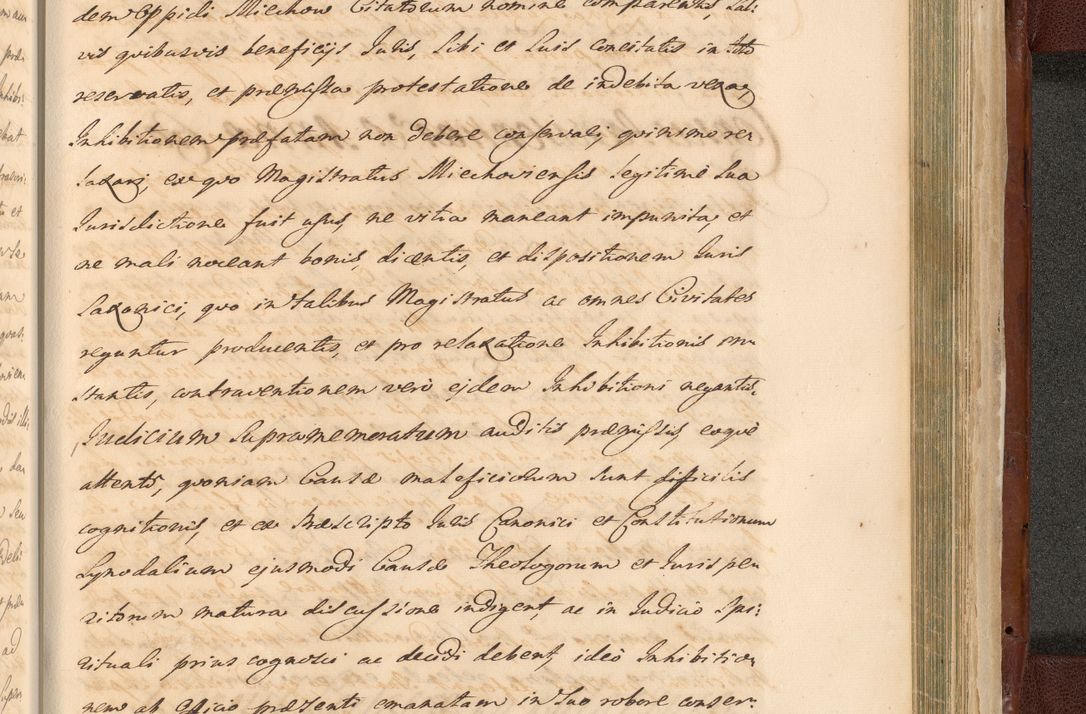 dem Oppidi Miechow Citatorum nomine comparentis, Sal:
vis quibusvis beneficijs Juris, Sibi et Suis concitatis in toto
reservatis, et præmissa protestatione de indebita vexae,
Inhibitionem præfatam non debere conservari, quinimo re
laxari, ex quo Magistratus Miechoviensis legitime Sua
Jurisdictione fuit usus, ne vitia maneant impunita, et
ne mali noceant bonis, dicentis, et dispositionem Juris
Saxonici, quo in talibus Magistratus ac omnes Civitates
reguntur producentis, et pro relaxatione Inhibitionis in
stantis, contraventionem vero ejdem Inhibitioni negantis,
Judicium Supramemoratum auditis præmissis, eoque
attento, quoniam Causæ maleficiorum sunt difficilis
cognitionis, et ex Præscripto Juris Canonici et Constitutionum
Synodalium ejusmodi Causæ Theologorum et Jurispe
ritorum matura discussione indigent, ac in Judicio Spi:
rituali prius cognosci ac decidi debent, ideo Inhibitio
nem ab Officio præsenti emanatam in Suo robore conser: